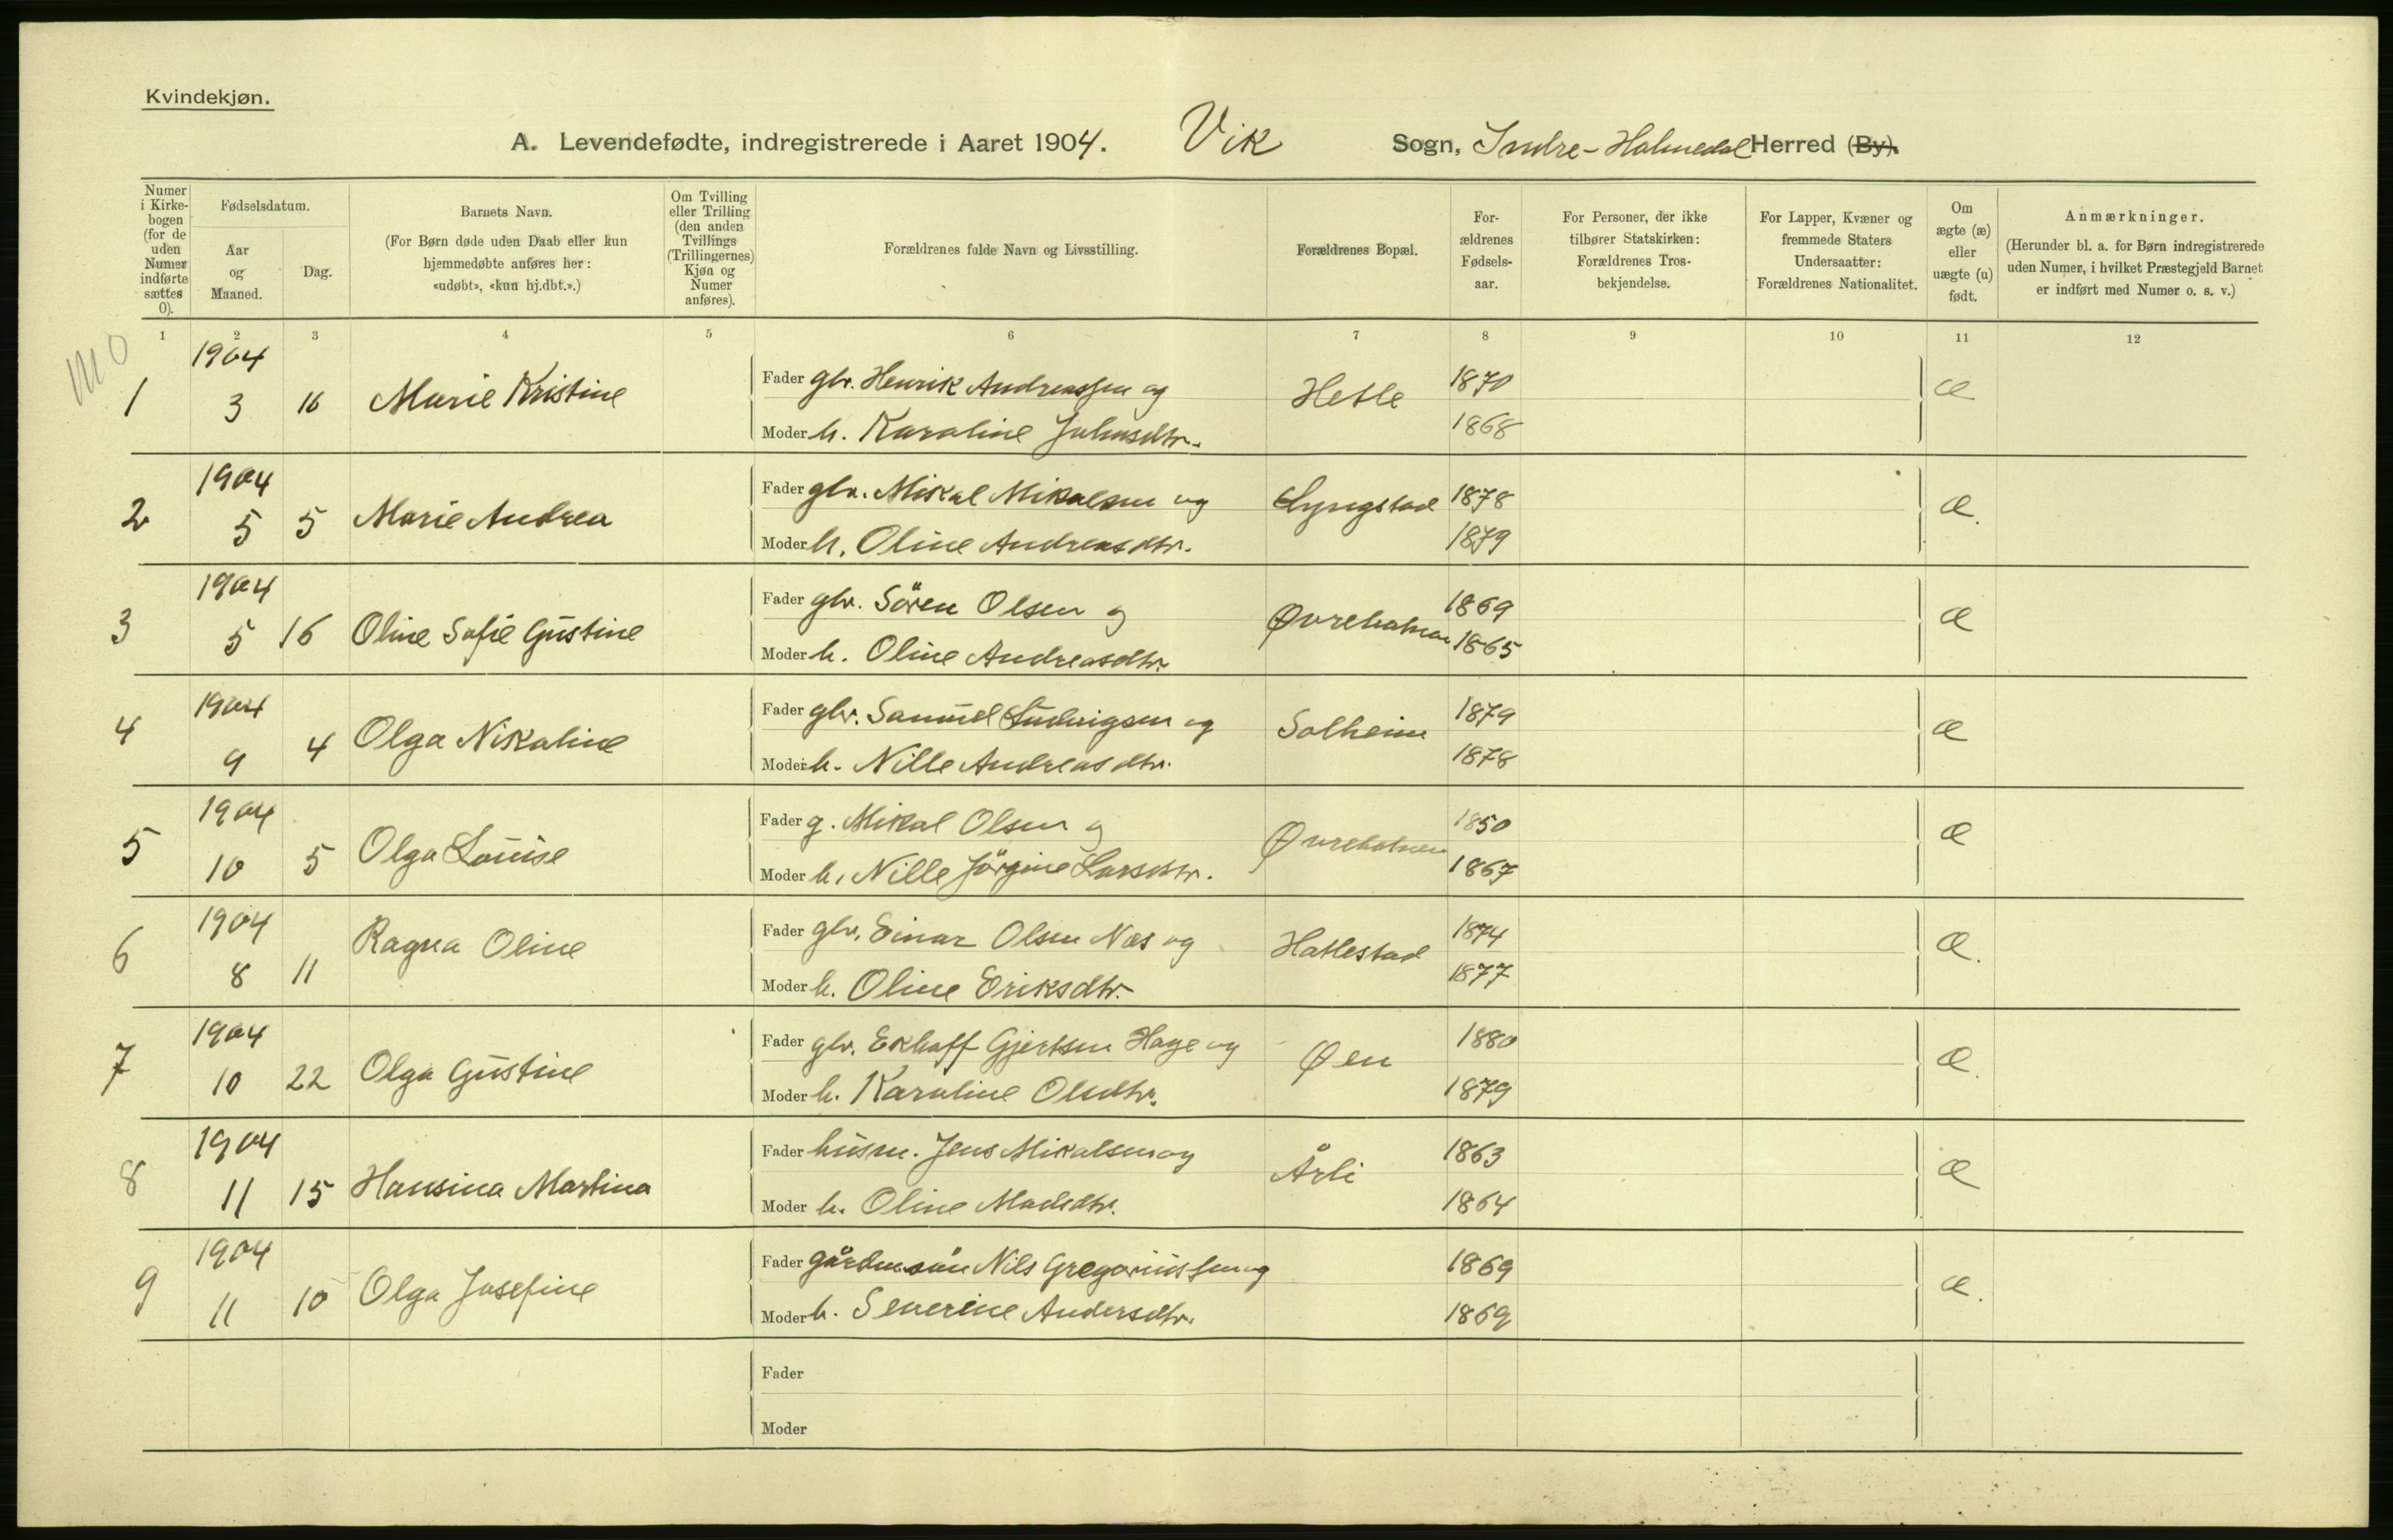 Kvindekjøn.
A. Levendefødte, indregistrerede i Aaret 1904. Vik Sogn, Indre-Holmedal Herred (By).
Numer i Kirkebogen (for de uden Numer indførte sættes 0).
Fødselsdatum.
Aar og Maaned.
Dag.
Barnets Navn.
(For Børn døde uden Daab eller kun hjemmedøbte anføres her: «udøbt», «kun hj.dbt.».)
Om Tvilling eller Trilling (den anden Tvillings (Trillingernes) Kjøn og Numer anføres).
Forældrenes fulde Navn og Livsstilling.
Forældrenes Bopæl.
Forældrenes Fødselsaar.
For Personer, der ikke tilhører Statskirken: Forældrenes Trosbekjendelse.
For Lapper, Kvæner og fremmede Staters Undersaatter: Forældrenes Nationalitet.
Om ægte (æ) eller uægte (u) født.
Anmærkninger.
(Herunder bl. a. for Børn indregistrerede uden Numer, i hvilket Præstegjeld Barnet er indført med Numer o. s. v.)
1 2 3 4 5 6 7 8 9 10 11 12
1 1904 3 16 Marie Kristine Fader gbr. Henrik Andreassen og Hetle 1870 æ
Moder h. Karoline Johnsdtr. 1868
2 1904 5 5 Marie Andrea Fader gbr. Mikal Mikalsen og Lyngstad 1878 æ.
Moder h. Oline Andreasdtr. 1879
3 1904 5 16 Oline Sofie Gustine Fader gbr. Sören Olsen og Øvrebotnen 1869 æ
Moder h. Oline Andreasdtr. 1865
4 1904 9 4 Olga Nikoline Fader gbr. Samuel Ludvigsen og Solheim 1879 æ
Moder h. Nille Andreasdtr. 1878
5 1904 10 5 Olga Louise Fader g. Mikal Olsen og Øvrebotnen 1850 æ
Moder h. Nille Jörgine Larsdtr. 1867
6 1904 8 11 Ragna Oline Fader gbr. Einar Olsen Næs og Hatlestad 1874 æ.
Moder h. Oline Eriksdtr. 1877
7 1904 10 22 Olga Gustine Fader gbr. Ekhoff Gjertsen Hage og Øen 1880 æ.
Moder h. Karoline Olsdtr. 1879
8 1904 11 15 Hansina Martina Fader husm. Jens Mikalsen og Årli 1863 æ
Moder h. Oline Madsdtr. 1864
9 1904 11 10 Olga Josefine Fader Nils Gregoriussen og 1869 æ.
Moder h. Severine Andersdtr. 1869
Fader
Moder